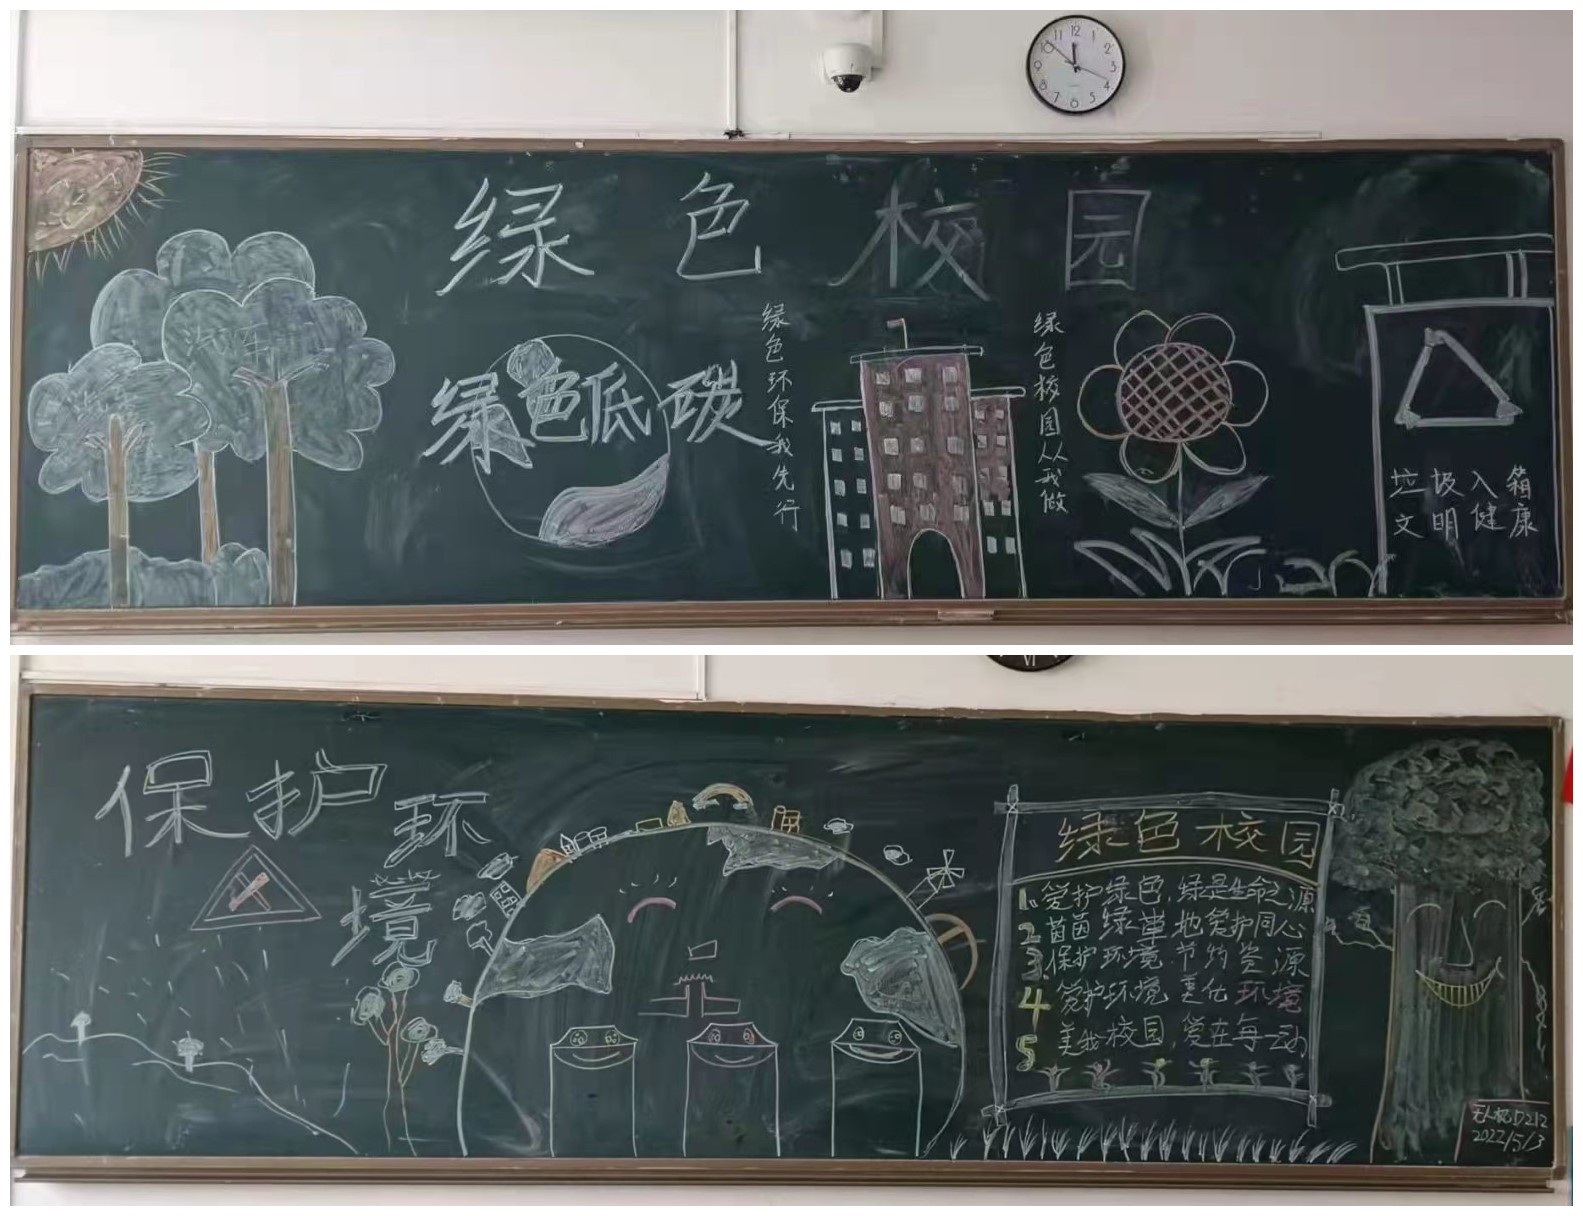 绿色校园
绿色低碳
绿色环保我先行
绿色校园从我做
垃圾入箱
文明健康
保护环境
绿色校园
1 爱护绿色,绿是生命之源
2 茵茵绿草地爱护同心
3 保护环境 节约资源
4 爱护环境 美化环境
5 美我校园,爱在每一动
无人机D212
2022/5/3